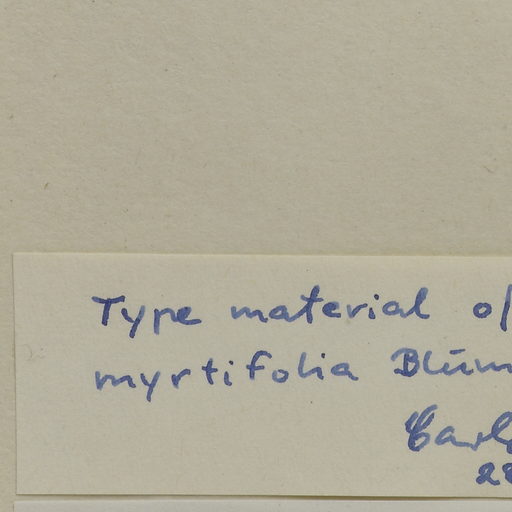 Type material of
myrtifolia Blum
Carl
28